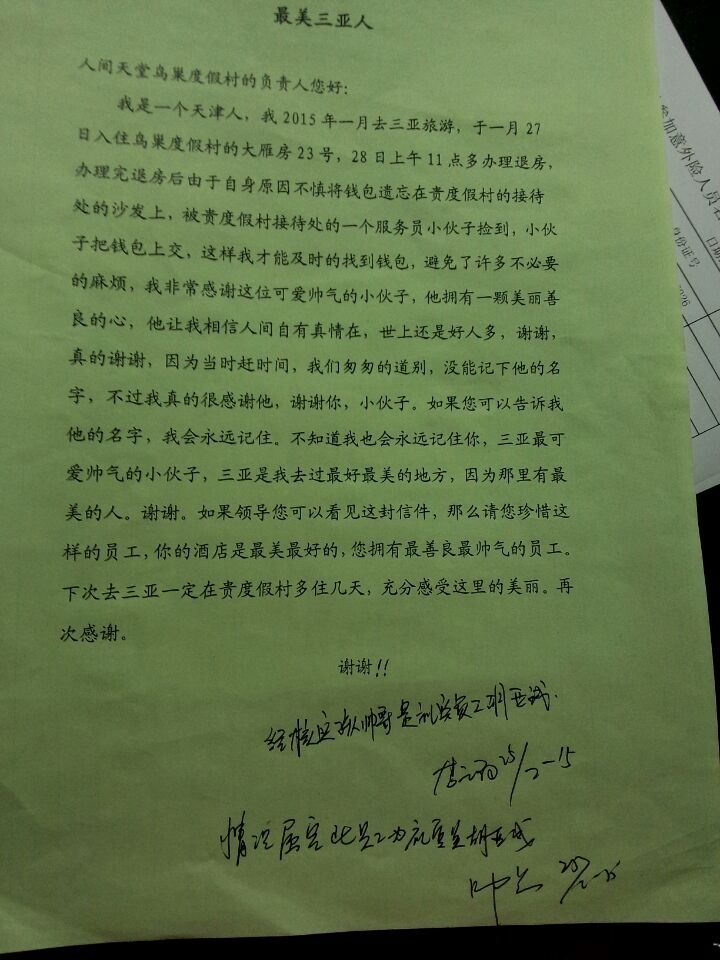 最美三亚人
人间天堂鸟巢度假村的负责人您好：
我是一个天津人，我 2015 年一月去三亚旅游，于一月 27
日入住鸟巢度假村的大雁房 23 号，28 日上午 11 点多办理退房，
办理完退房后由于自身原因不慎将钱包遗忘在贵度假村的接待
处的沙发上，被贵度假村接待处的一个服务员小伙子捡到，小伙
子把钱包上交，这样我才能及时的找到钱包，避免了许多不必要
的麻烦，我非常感谢这位可爱帅气的小伙子，他拥有一颗美丽善
良的心，他让我相信人间自有真情在，世上还是好人多，谢谢，
真的谢谢，因为当时赶时间，我们匆匆的道别，没能记下他的名
字，不过我真的很感谢他，谢谢你，小伙子。如果您可以告诉我
他的名字，我会永远记住。不知道我也会永远记住你，三亚最可
爱帅气的小伙子，三亚是我去过最好最美的地方，因为那里有最
美的人。谢谢。如果领导您可以看见这封信件，那么请您珍惜这
样的员工，你的酒店是最美最好的，您拥有最善良最帅气的员工。
下次去三亚一定在贵度假村多住几天，充分感受这里的美丽。再
次感谢。
谢谢！！
情况属实 此员工为
参加意外险人员名
身份证号